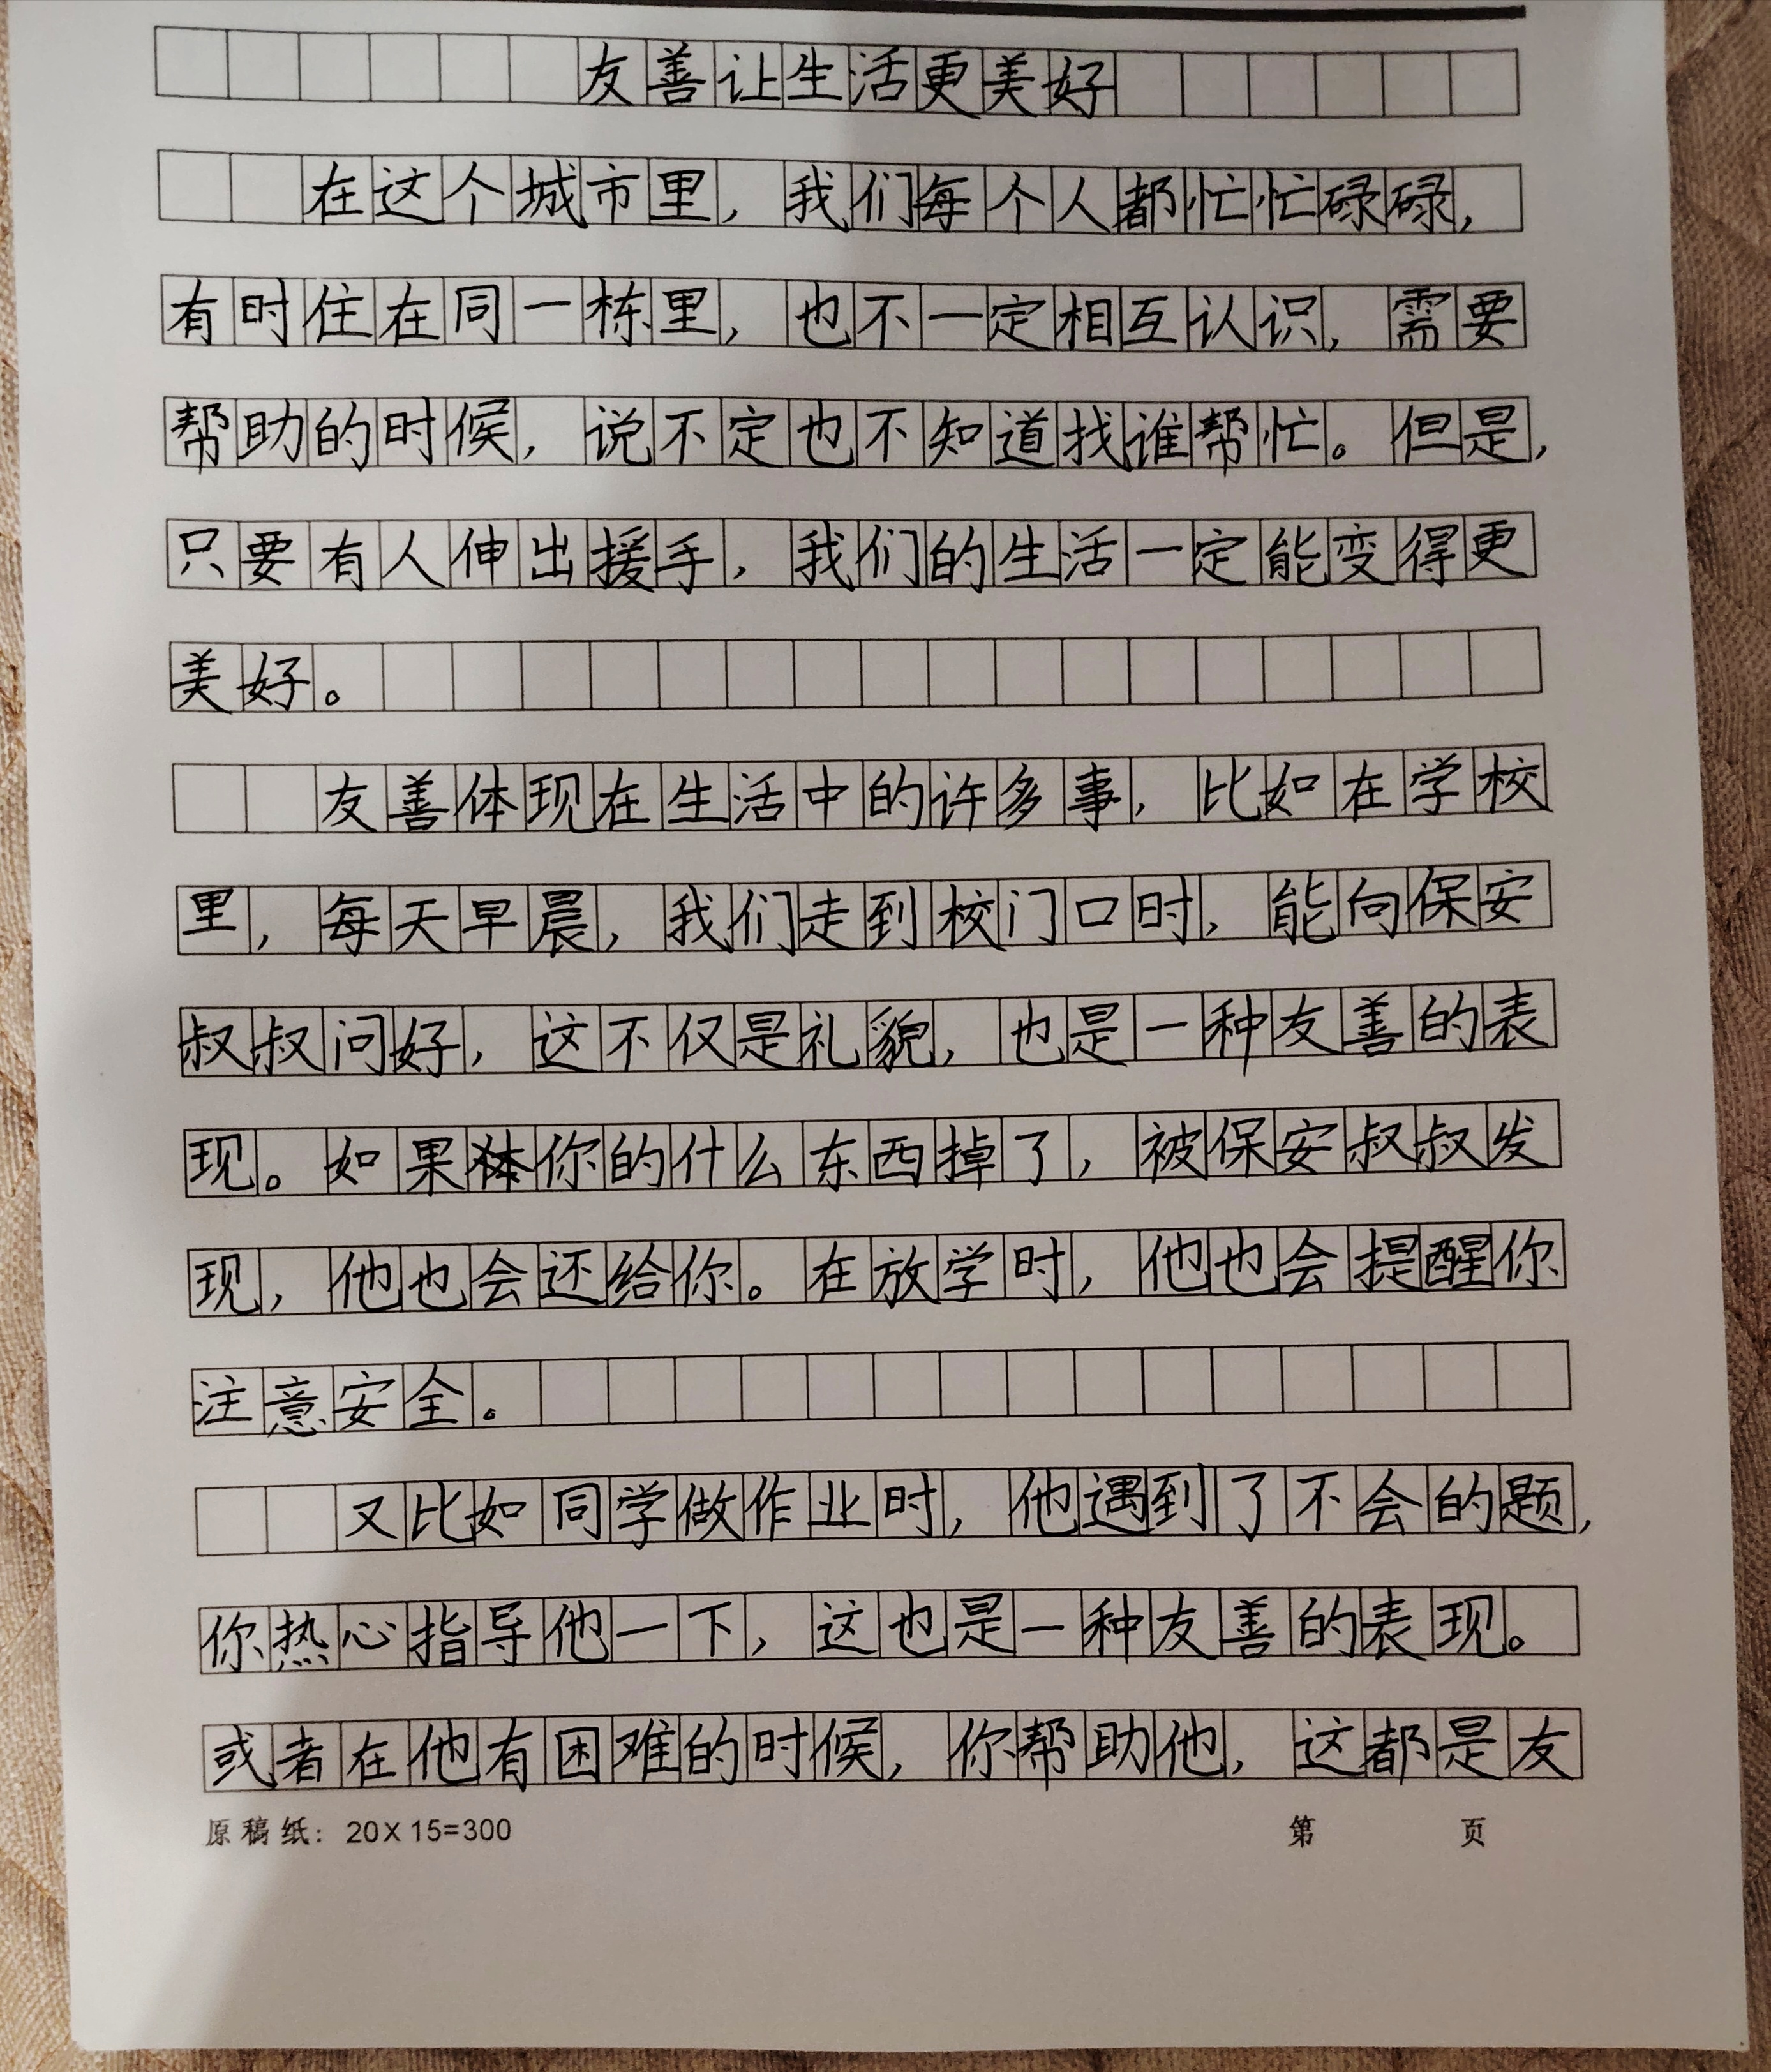 友善让生活更美好
在这个城市里，我们每个人都忙忙碌碌，
有时住在同一栋里，也不一定相互认识，需要
帮助的时候，说不定也不知道找谁帮忙。但是，
只要有人伸出援手，我们的生活一定能变得更
美好。
友善体现在生活中的许多事，比如在学校
里，每天早晨，我们走到校门口时，能向保安
叔叔问好，这不仅是礼貌，也是一种友善的表
现。如果你的什么东西掉了，被保安叔叔发
现，他也会还给你。在放学时，他也会提醒你
注意安全。
又比如同学做作业时，他遇到了不会的题，
你热心指导他一下，这也是一种友善的表现。
或者在他有困难的时候，你帮助他，这都是友
原稿纸：20X15=300 第 页